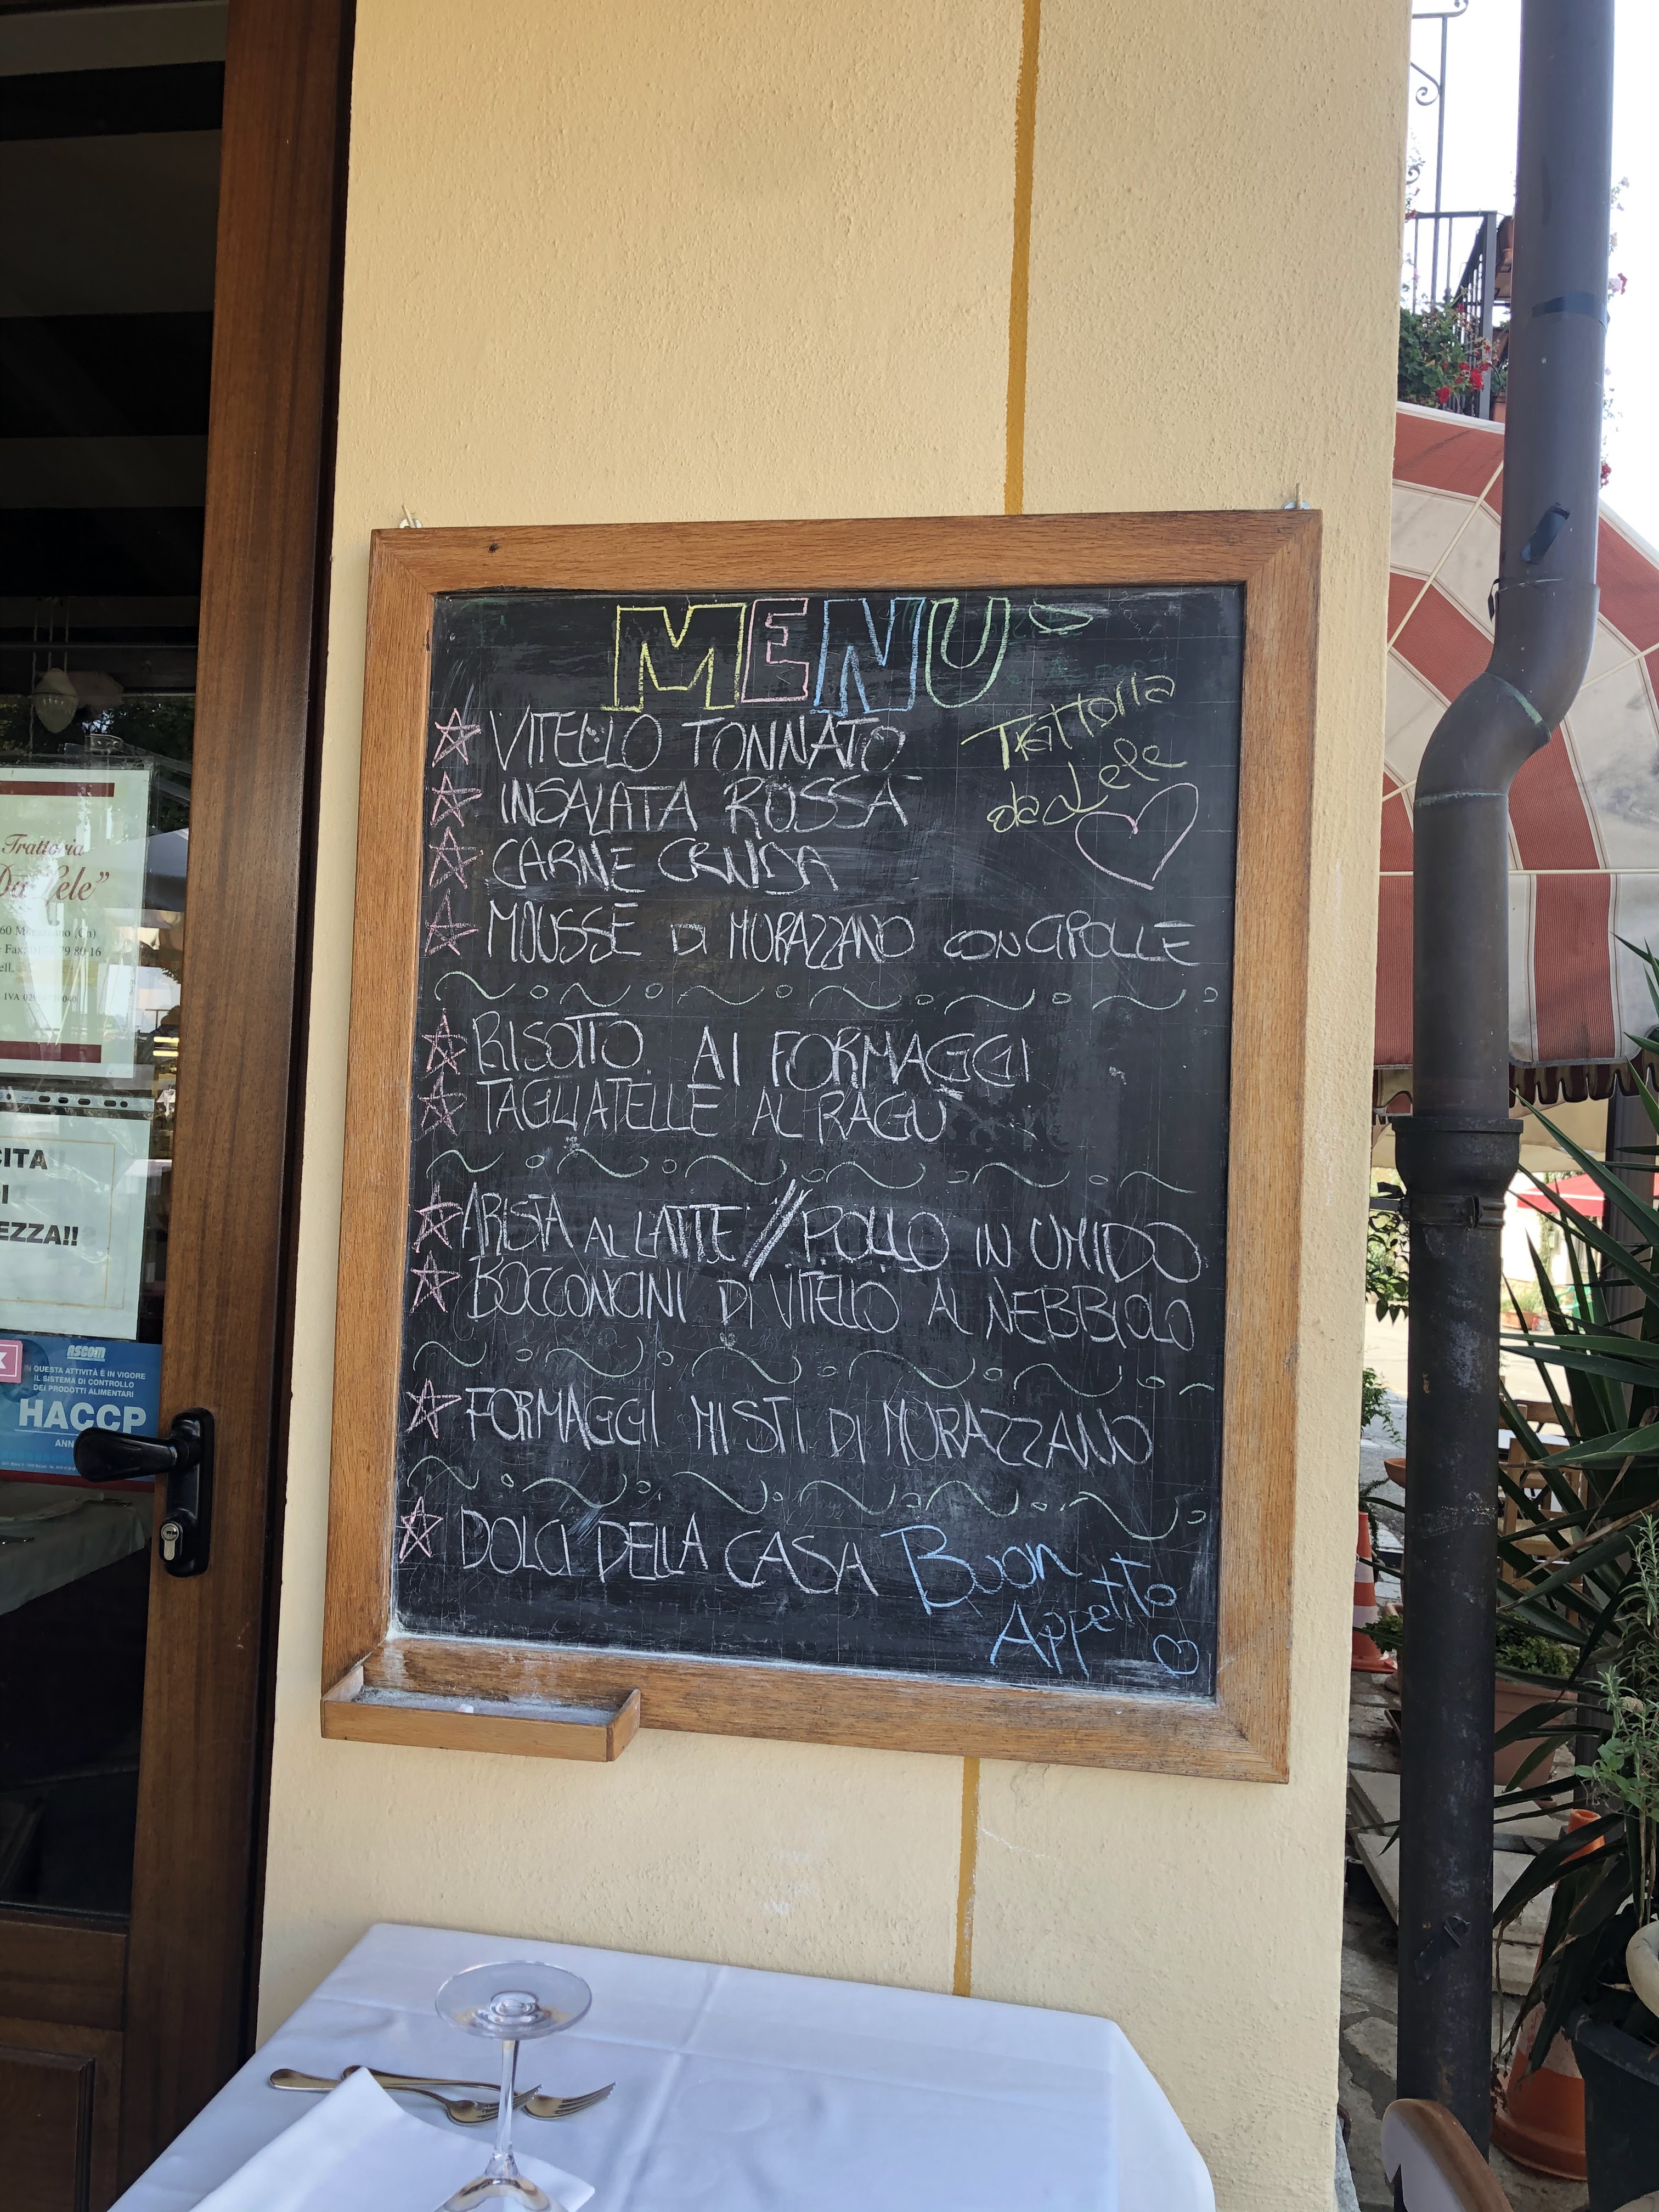 MENU'
Trattoria
da Lele
VITELLO TONNATO
INSALATA ROSSA
CARNE CRUDA
MOUSSE DI MURAZZANO CON CIPOLLE
RISOTTO AI FORMAGGI
TAGLIATELLE AL RAGU'
ARISTA AL LATTE // POLLO IN UMIDO
BOCCONCINI DI VITELLO AL NEBBIOLO
FORMAGGI MISTI DI MURAZZANO
DOLCI DELLA CASA
Buon
Appetito
Trattoria
Da Lele"
60 Murazzano (Cn)
79 80 16
CITA
EZZA!!
ascom
IN QUESTA ATTIVITÀ È IN VIGORE
IL SISTEMA DI CONTROLLO
DEI PRODOTTI ALIMENTARI
HACCP